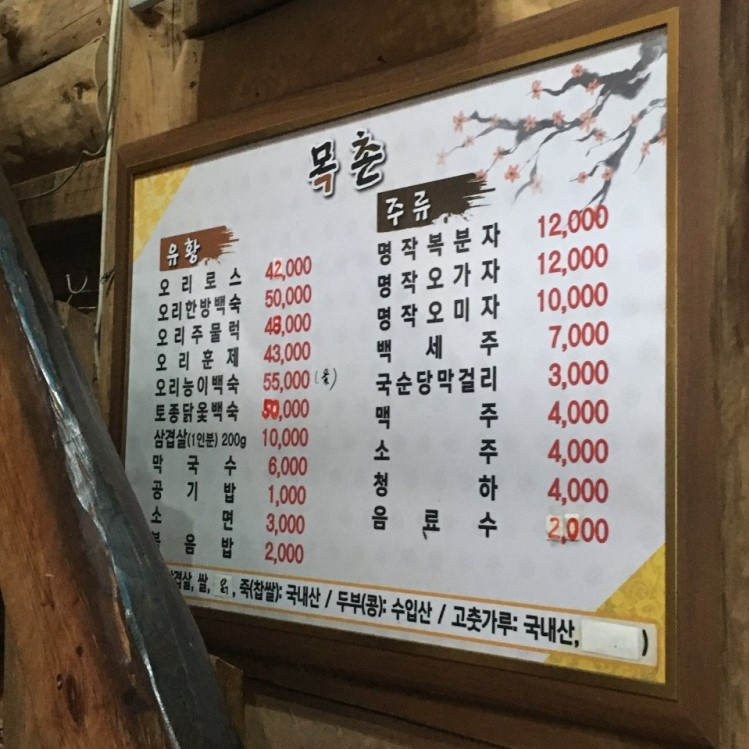 목촌
유황
오리로스 42,000
오리한방백숙 50,000
오리주물럭 48,000
오리훈제 43,000
오리능이백숙 55,000 (옻)
토종닭옻백숙 50,000
삼겹살(1인분) 200g 10,000
막국수 6,000
공기밥 1,000
소면 3,000
볶음밥 2,000
주류
명작복분자 12,000
명작오가자 12,000
명작오미자 10,000
백세주 7,000
국순당막걸리 3,000
맥주 4,000
소주 4,000
청하 4,000
음료수 2,000
겹살, 쌀, 죽(찹쌀): 국내산 / 두부(콩): 수입산 / 고춧가루: 국내산, )